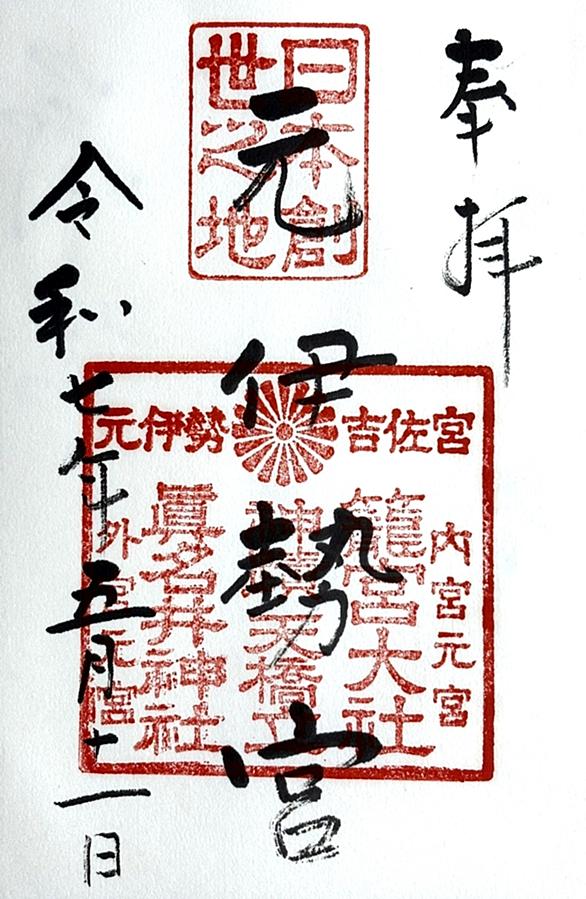 奉拝
日本創
世之地
元伊勢宮
吉佐宮
元伊勢
内宮元宮
籠宮大社
神貴天橋立
眞名井神社
外宮元宮
令和七年五月十一日